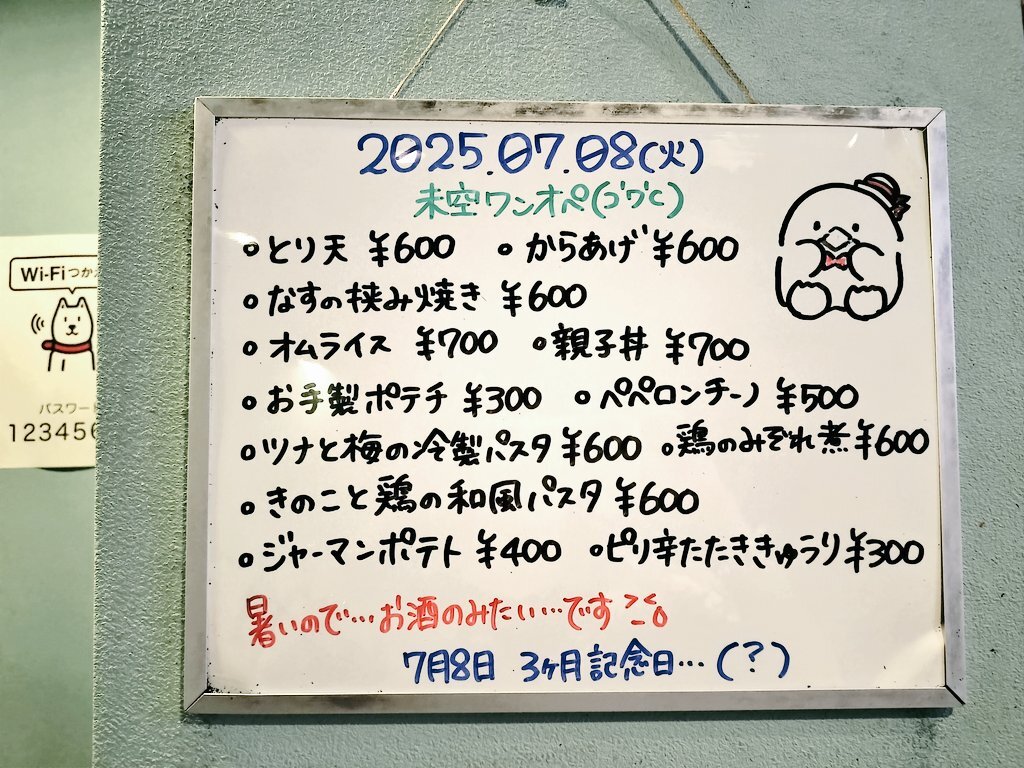 2025.07.08(火)
未空ワンオペ
・とり天 ¥600 ・からあげ ¥600
・なすの挟み焼き ¥600
・オムライス ¥700 ・親子丼 ¥700
・お手製ポテチ ¥300 ・ペペロンチーノ ¥500
・ツナと梅の冷製パスタ ¥600 ・鶏のみぞれ煮 ¥600
・きのこと鶏の和風パスタ ¥600
・ジャーマンポテト ¥400 ・ピリ辛たたききゅうり ¥300
暑いので…お酒のみたい…です
7月8日 3ヶ月記念日…(?)
Wi-Fiつかえ
パスワード
123456